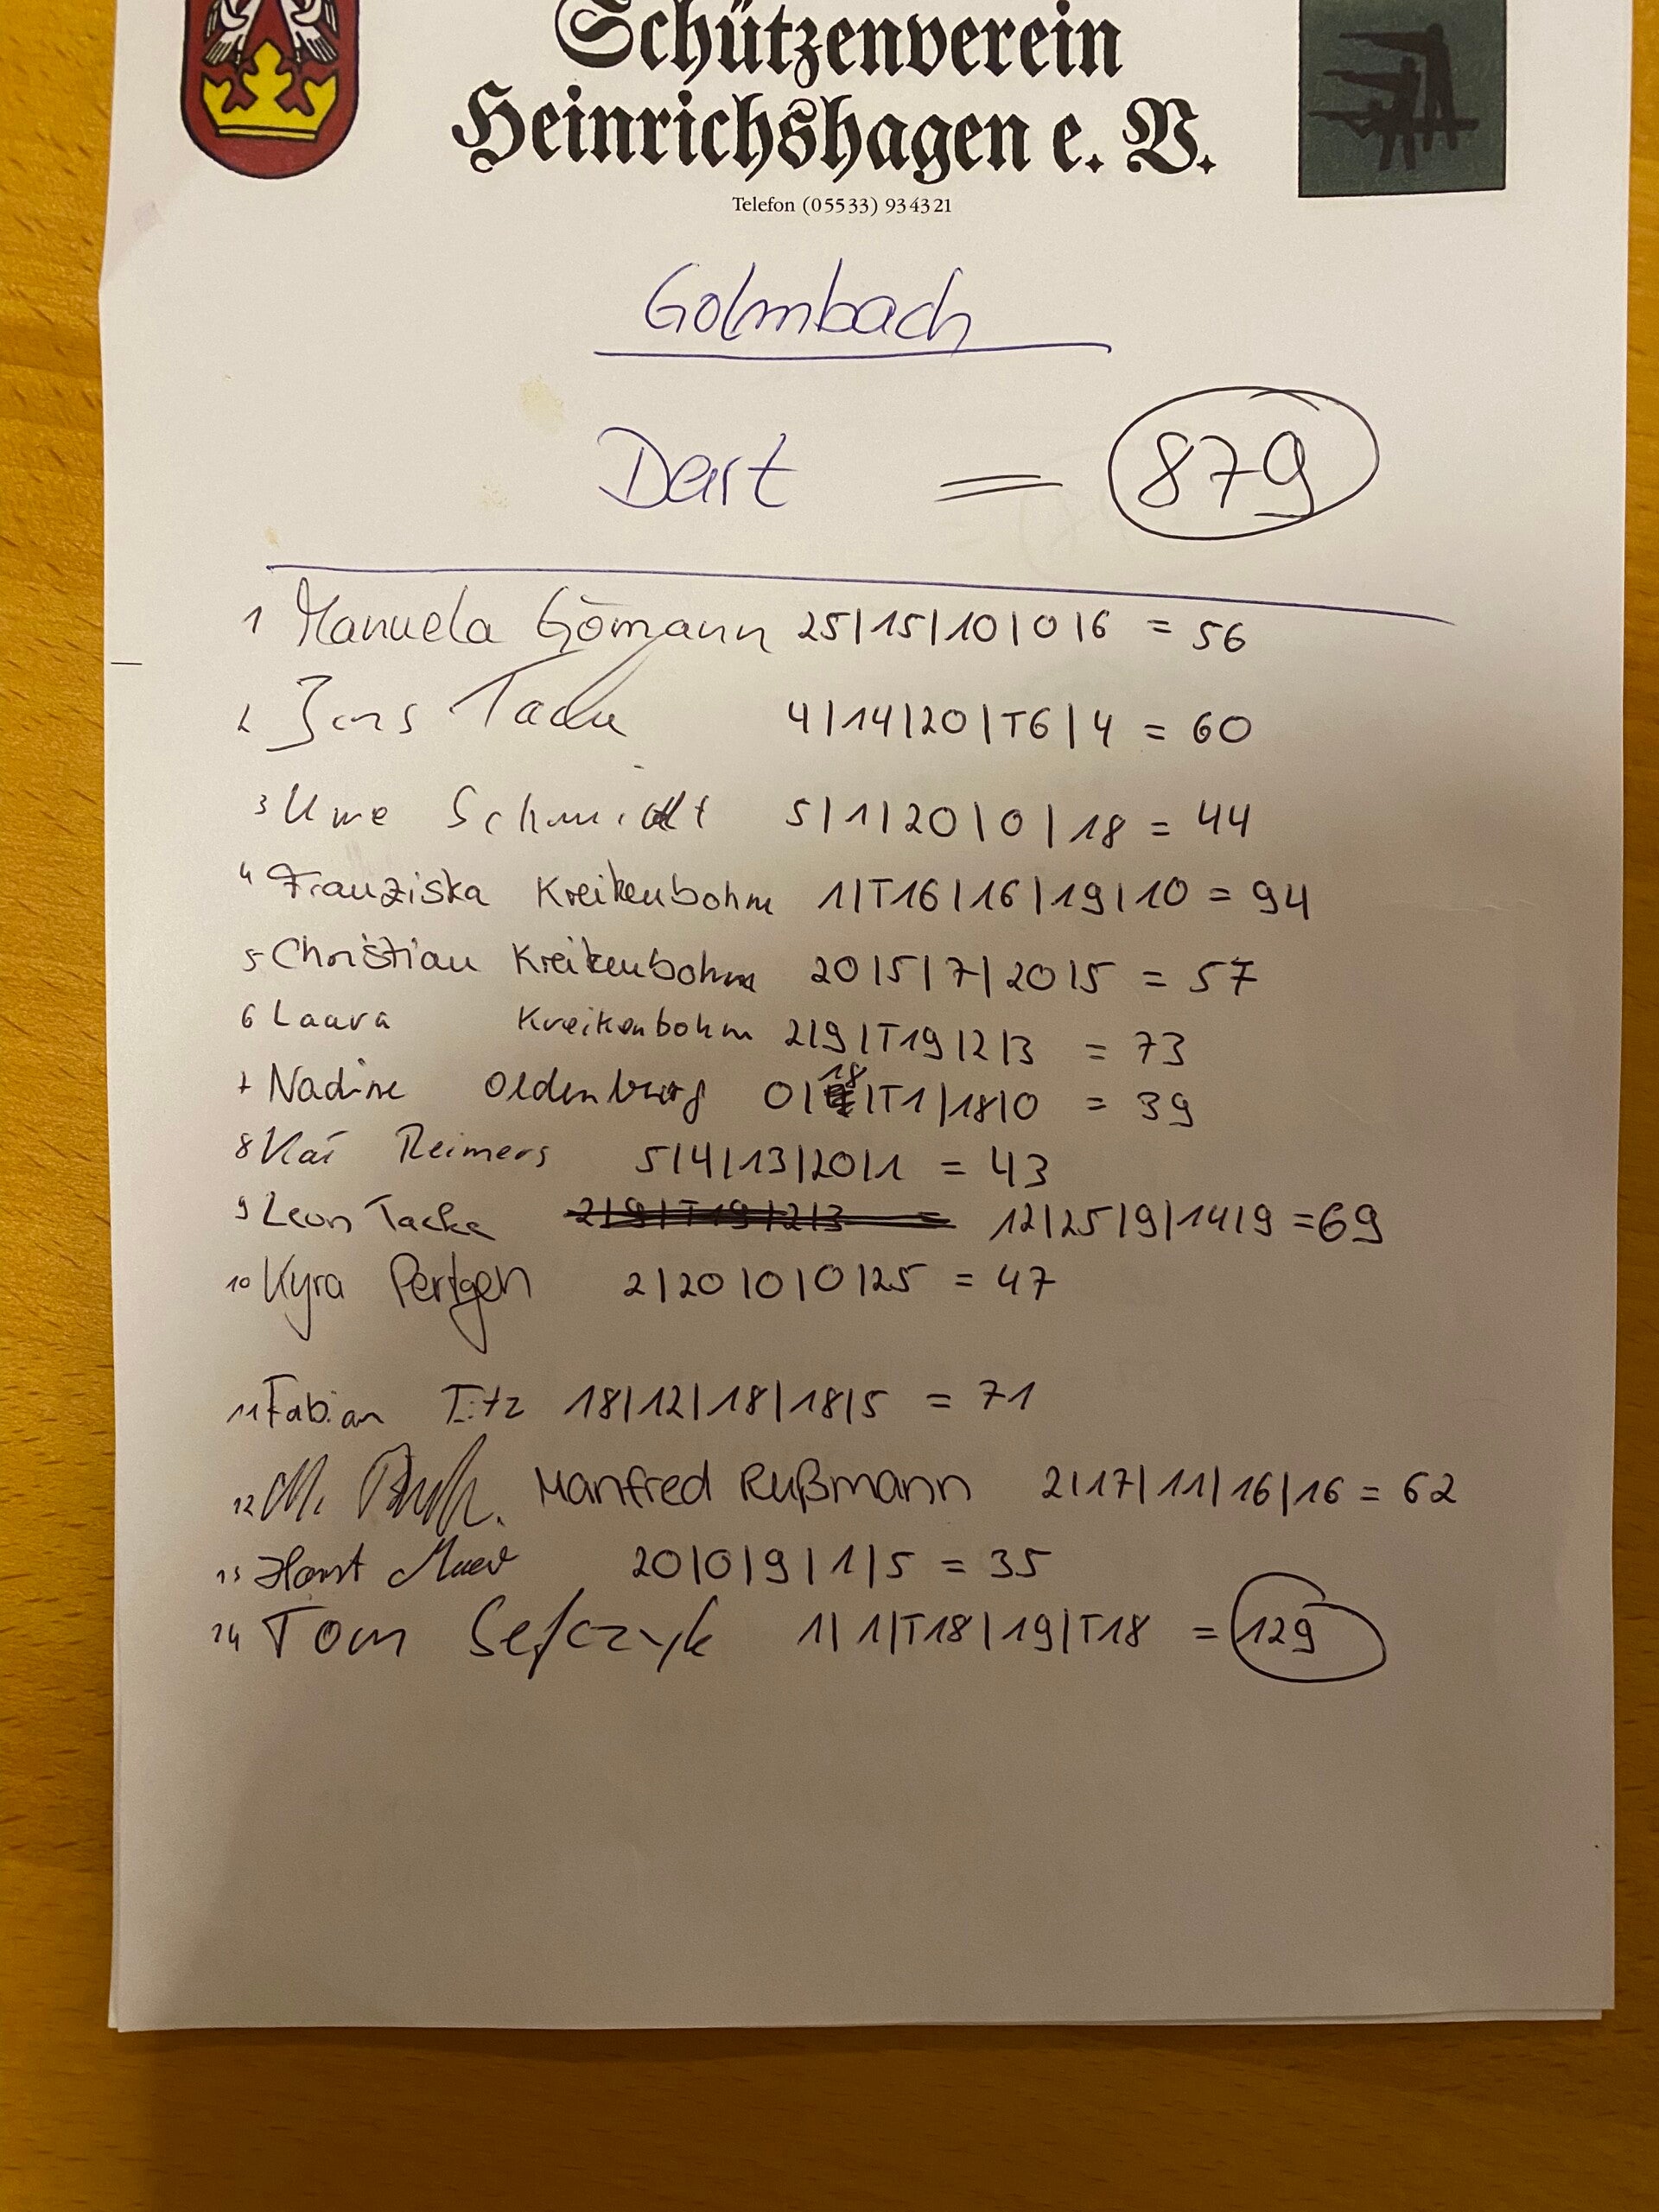 Schützenverein
Heinrichshagen e. V.
Telefon (05533) 934321
Golmbach
Dart = 879
1 Manuela Gömann 25|15|10|0|6 = 56
2 Jens Tacke 4|14|20|T6|4 = 60
3 Uwe Schmidt 5|1|20|0|18 = 44
4 Franziska Kreikenbohm 1|T16|16|19|10 = 94
5 Christian Kreikenbohm 20|5|7|20|5 = 57
6 Laura Kreikenbohm 2|9|T19|2|3 = 73
7 Nadine Oldenburg 0|18|T1|18|0 = 39
8 Kai Reimers 5|4|13|20|1 = 43
9 Leon Tacke 2|9|T19|2|3 = 12|25|9|14|9 = 69
10 Kyra Pertgen 2|20|0|0|25 = 47
11 Fabian Titz 18|12|18|18|5 = 71
12 M. Manfred Rußmann 2|17|11|16|16 = 62
13 Horst 20|0|9|1|5 = 35
14 Tom Sefczyk 1|1|T18|19|T18 = 129